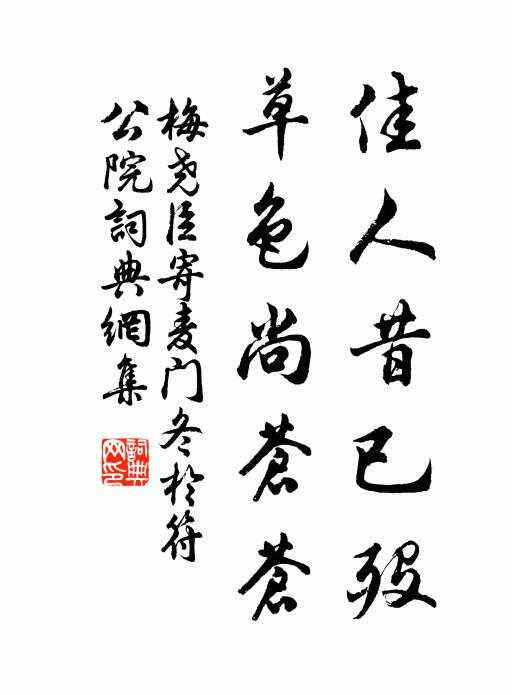 佳人昔已殁
草色尚蒼蒼
梅尧臣寄麦门冬於符
公院詞典網集
詞典网印